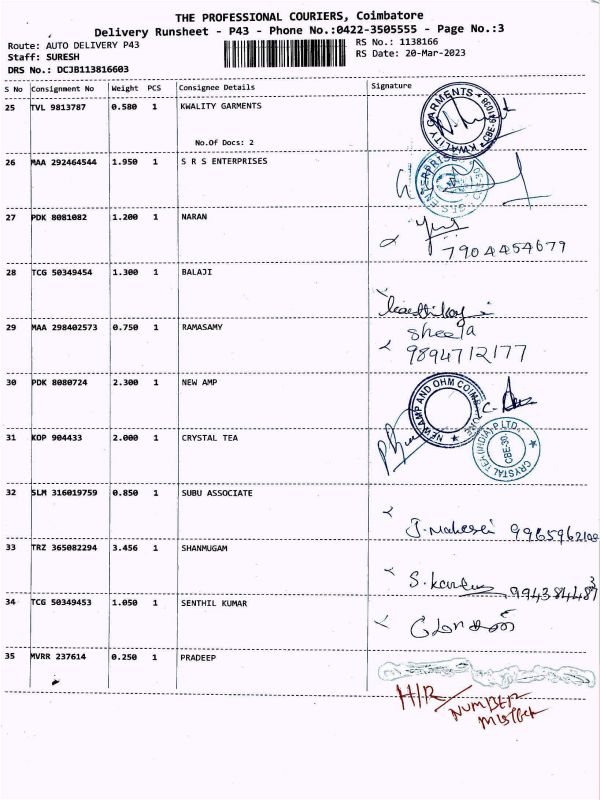 THE PROFESSIONAL COURIERS, Coimbatore
Delivery Runsheet - P43 - Phone No.:0422-3505555 - Page No.:3
Route: AUTO DELIVERY P43
RS No.: 1138166
Staff: SURESH
RS Date: 20-Mar-2023
DRS No.: DCJB113816603
S No Consignment No Weight PCS Consignee Details Signature
25 TVL 9813787 0.580 1 KWALITY GARMENTS
KWALITY GARMENTS
No.Of Docs: 2
26 MAA 292464544 1.950 1 S R S ENTERPRISES
27 PDK 8081082 1.200 1 NARAN
7904454679
28 TCG 50349454 1.300 1 BALAJI
29 MAA 298402573 0.750 1 RAMASAMY
Sheela
9894712177
30 PDK 8080724 2.300 1 NEW AMP
NEW AMP AND OHM
31 KOP 904433 2.000 1 CRYSTAL TEA
CRYSTAL TEA (INDIA) P.LTD.
CBE-30
32 SLM 316019759 0.850 1 SUBU ASSOCIATE
33 TRZ 365082294 3.456 1 SHANMUGAM
34 TCG 50349453 1.050 1 SENTHIL KUMAR
35 MVRR 237614 0.250 1 PRADEEP
H/R
NUMBER